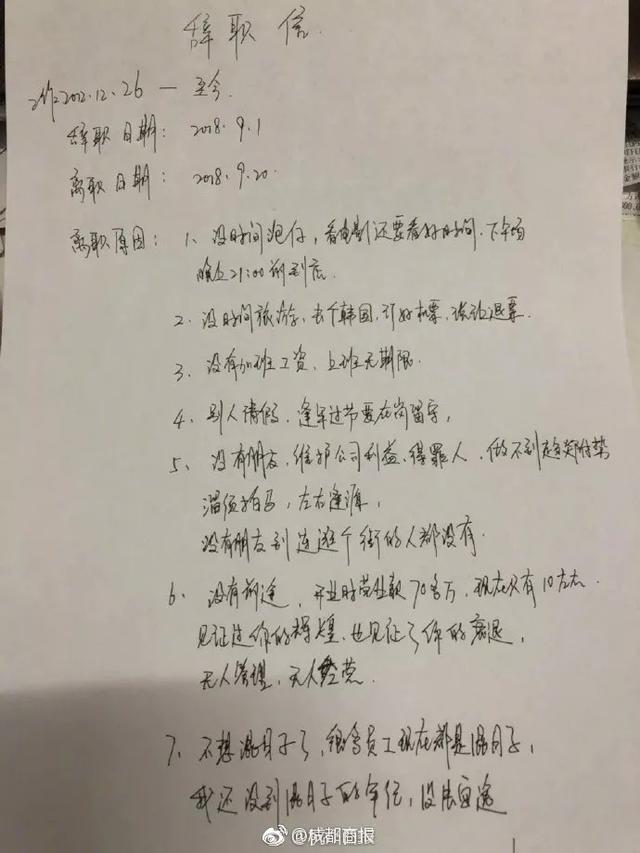 辞职信.
工作:2012.12.26 — 至今.
辞职日期: 2018.9.1
离职日期: 2018.9.20.
离职原因: 1、没时间泡仔,看电影还要看好时间.下午场
晚上21:00前到底.
2、没时间旅游,去个韩国,订好机票,谈说退票.
3、没有加班工资,上班无期限.
4、别人请假,逢年过节要在岗留守,
5、没有朋友,维护公司利益,得罪人,做不到趋炎附势
溜须拍马,左右逢源,
没有朋友到连逛个街的人都没有.
6、没有前途,开业时营业额70多万,现在只有10左右.
见证过你的辉煌,也见证了你的衰退,
无人管理,无人经营.
7、不想混日子了,很多员工现在都是混日子,
我还没到混日子的年纪,没法
@成都商报